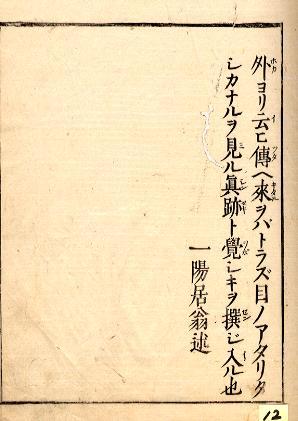 外ヨリ云ヒ傳ヘ來ヲバトラズ目ノアタリタ
シカナルヲ見ル眞跡ト覺シキヲ撰ビ入ル也
一陽居翁述
12